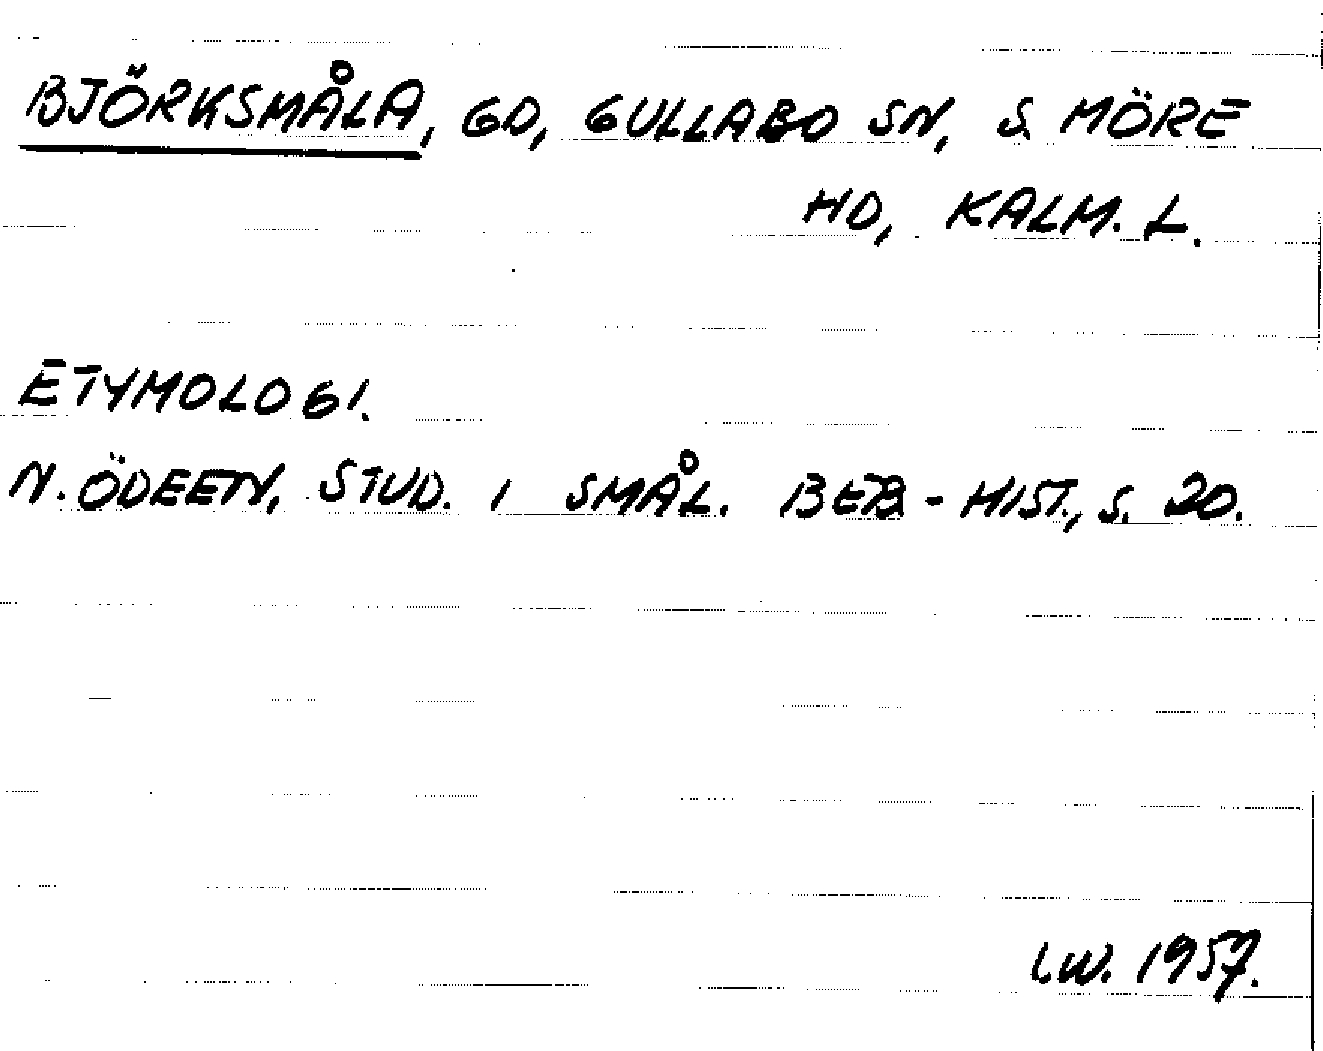 BJÖRKSMÅLA, GD, GULLABO SN, S. MÖRE
HD, KALM. L.
ETYMOLOGI.
N. ÖDEEN, STUD. I SMÅL. BEB-HIST., S. 20.
LW. 1957.